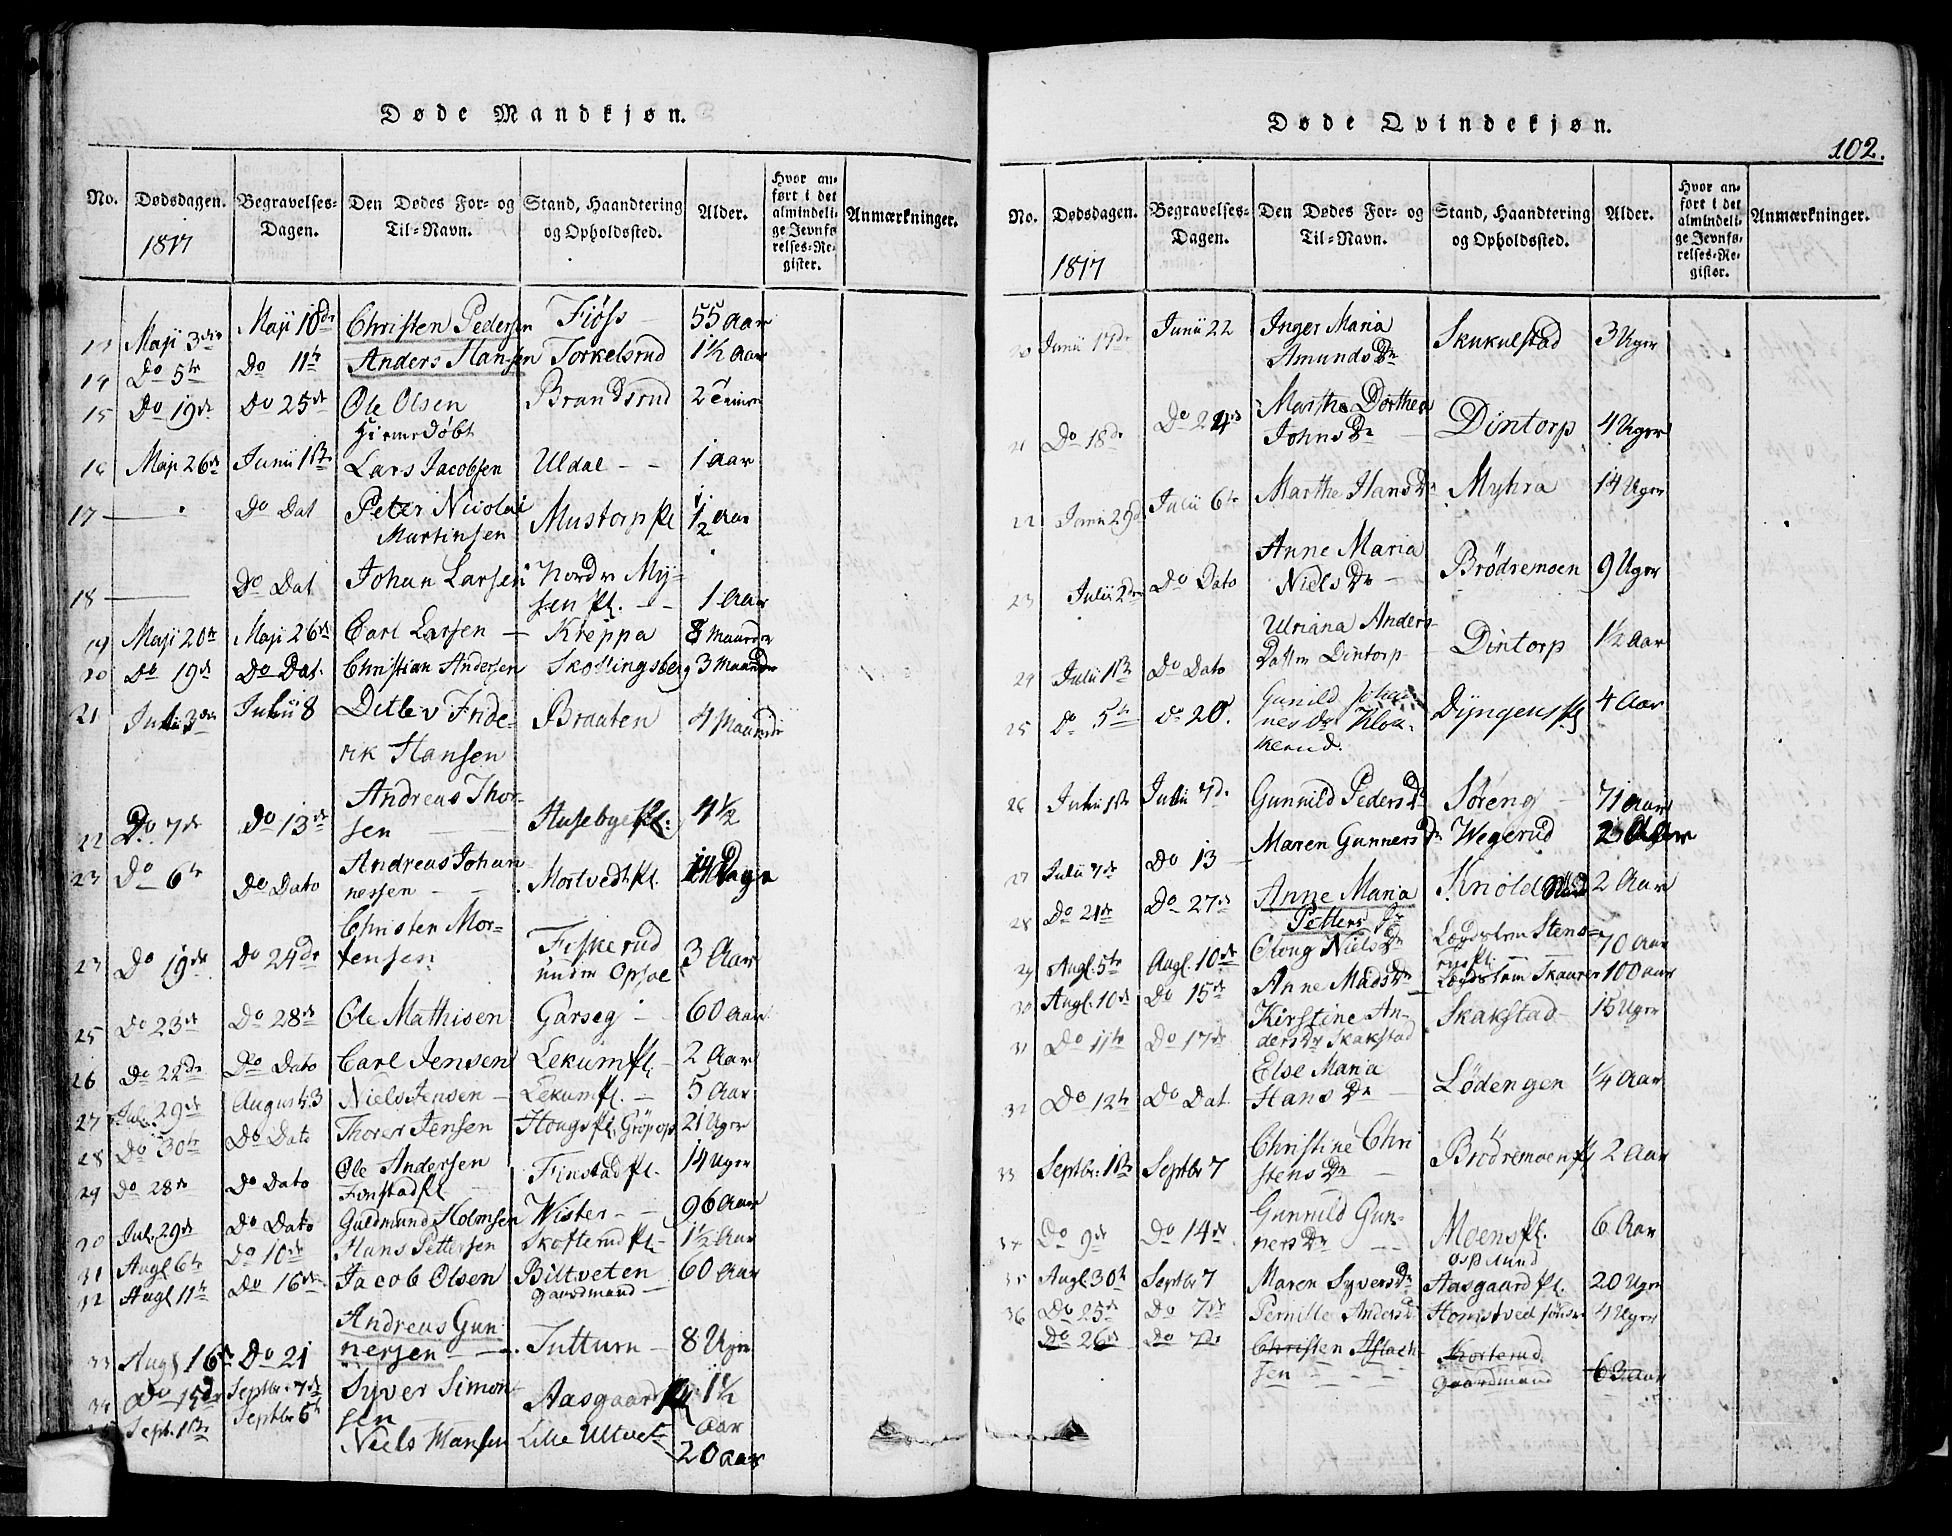 Døde Mandkjøn.
No. Dødsdagen. Begravelses-Dagen. Den Dødes For- og Til-Navn. Stand, Haandtering og Opholdssted. Alder. Hvor anført i det almindelige Jevnførelses-Register. Anmærkninger.
1817
13 Maji 3die Maji 18de Christen Pedersen Fiøss 55 Aar
14 Do 5te Do 11te Anders Hansen Torkelsrud 1½ Aar
15 Do 19de Do 25de Ole Olsen Brandsrud 2 Timer
Hiemedøbt
16 Maji 26de Junii 1ste Lars Jacobsen Uldal 1 aar
17 — Do Dat Peter Nicolai Mustorp Pl ½ Aar
Martinsen
18 — Do Dat Johan Larsen Nordre My-
sen Pl. 1 Aar
19 Maji 20de Maji 26de Carl Larsen Kreppa 8 Maaneder
20 Do 19de Do Dat. Christian Andersen Skollingsberg 3 Maaneder
21 Julii 3die Julii 8 Ditlev Fride- Braaten 4 Maaneder
rik Hansen
22 Do 7de Do 13de Andreas Thor- Husebye Pl. 4½
sen
23 Do 6te Do Dato Andreas Johan Mortvedt Pl. 14 Dage
nessen
23 Do 19de Do 24de Christen Mor- Fiskerud 3 Aar
tensen under Opsal
25 Do 23de Do 28de Ole Mathisen Garseg 60 Aar
26 Do 22de Do Dato Carl Jensen Lekum Pl. 2 Aar
27 Jul. 29de August. 3 Niels Jensen Lekum Pl. 5 Aar
28 Do 30te Do Dato Thorer Jensen Hougs Pl. 21 Uger
29 Do 28de Do Dato Ole Andersen Finstad Pl. 14 Uger
Finstad Pl
30 Jul. 29de Do Dato Guldmund Holmsen Wister 96 Aar
31 Augl 6te Do 10de Hans Pettersen Skofterud Pl 1½ Aar
32 Augl 11te Do 16de Jacob Olsen Biltveten 60 Aar
gaardmand
33 Augl 16de Do 21 Andreas Gun- Tutturn 8 Uger
nersen
34 Do 15de Septbr. 7de Syver Simon- Aasgaard Pl 1½
sen Aar
Sept. 1ste Septbr 6te Niels Hansen Lille Ultvet 20 aar
Døde Qvindekjøn.
102.
No. Dødsdagen. Begravelses-Dagen. Den Dødes For- og Til-Navn. Stand, Haandtering og Opholdssted. Alder. Hvor anført i det almindelige Jevnførelses-Register. Anmærkninger.
1817
20 Junii 17de Junii 22 Inger Maria Skukulstad 3 Uger
Amunds Dr
21 Do 18de Do 24de Marthe Dorthea Dintorp 4 Uger
Johns Dr
22 Junii 29de Julii 6te Marthe Hans Dr Myhra 14 Uger
23 Julii 2den Do Dato Anne Maria Brödremoen 9 Uger
Niels Dr
24 Julii 1ste Do Dato Ulriana Anders- Dintorp 1½ Aar
Datter Dintorp
25 Do 5te Do 20. Gunild Johan Dyngens Pl 4 Aar
nes Dr Klok-
kerud.
26 Julii 1ste Julii 7de Gunnild Peders Dr Søreng 71 Aar
27 Julii 7de Do 13 Maren Gunners Dr Wegerud 2
28 Do 21de Do 27de Anne Maria Knold 2 Aar
Petters Dr
29 Augl. 5te Augl. 10de Eloug Niels Dr Lægdslem Stens- 70 Aar
rus Pl.
30 Augl. 10de Do 15de Anne Mads Dr Lægdslem Skaurer 100 aar
31 Do 11te Do 17de Kirstine An- Skakstad 15 Uger
ders Dr Skakstad
32 Do 12te Do Dat. Else Maria Lödengen ¼ Aar
Hans Dr
33 Septbr. 1ste Septbr 7 Christine Chri Brödremoen Pl 2 Aar
stens Dr
34 Do 9de Do 14de Gunnild Gun- Moens Pl. 6 Aar
ners Dr
35 Augl. 30te Septbr 7 Maren Syvers Dr Aasgaard Pl. 20 Uger
36 Do 25de Do 7de Pernille Anders Dr Homstved 4 Uger
Do 26de Do 7de Christen Aslach- Korterud 63 Aar
sen gaardmand